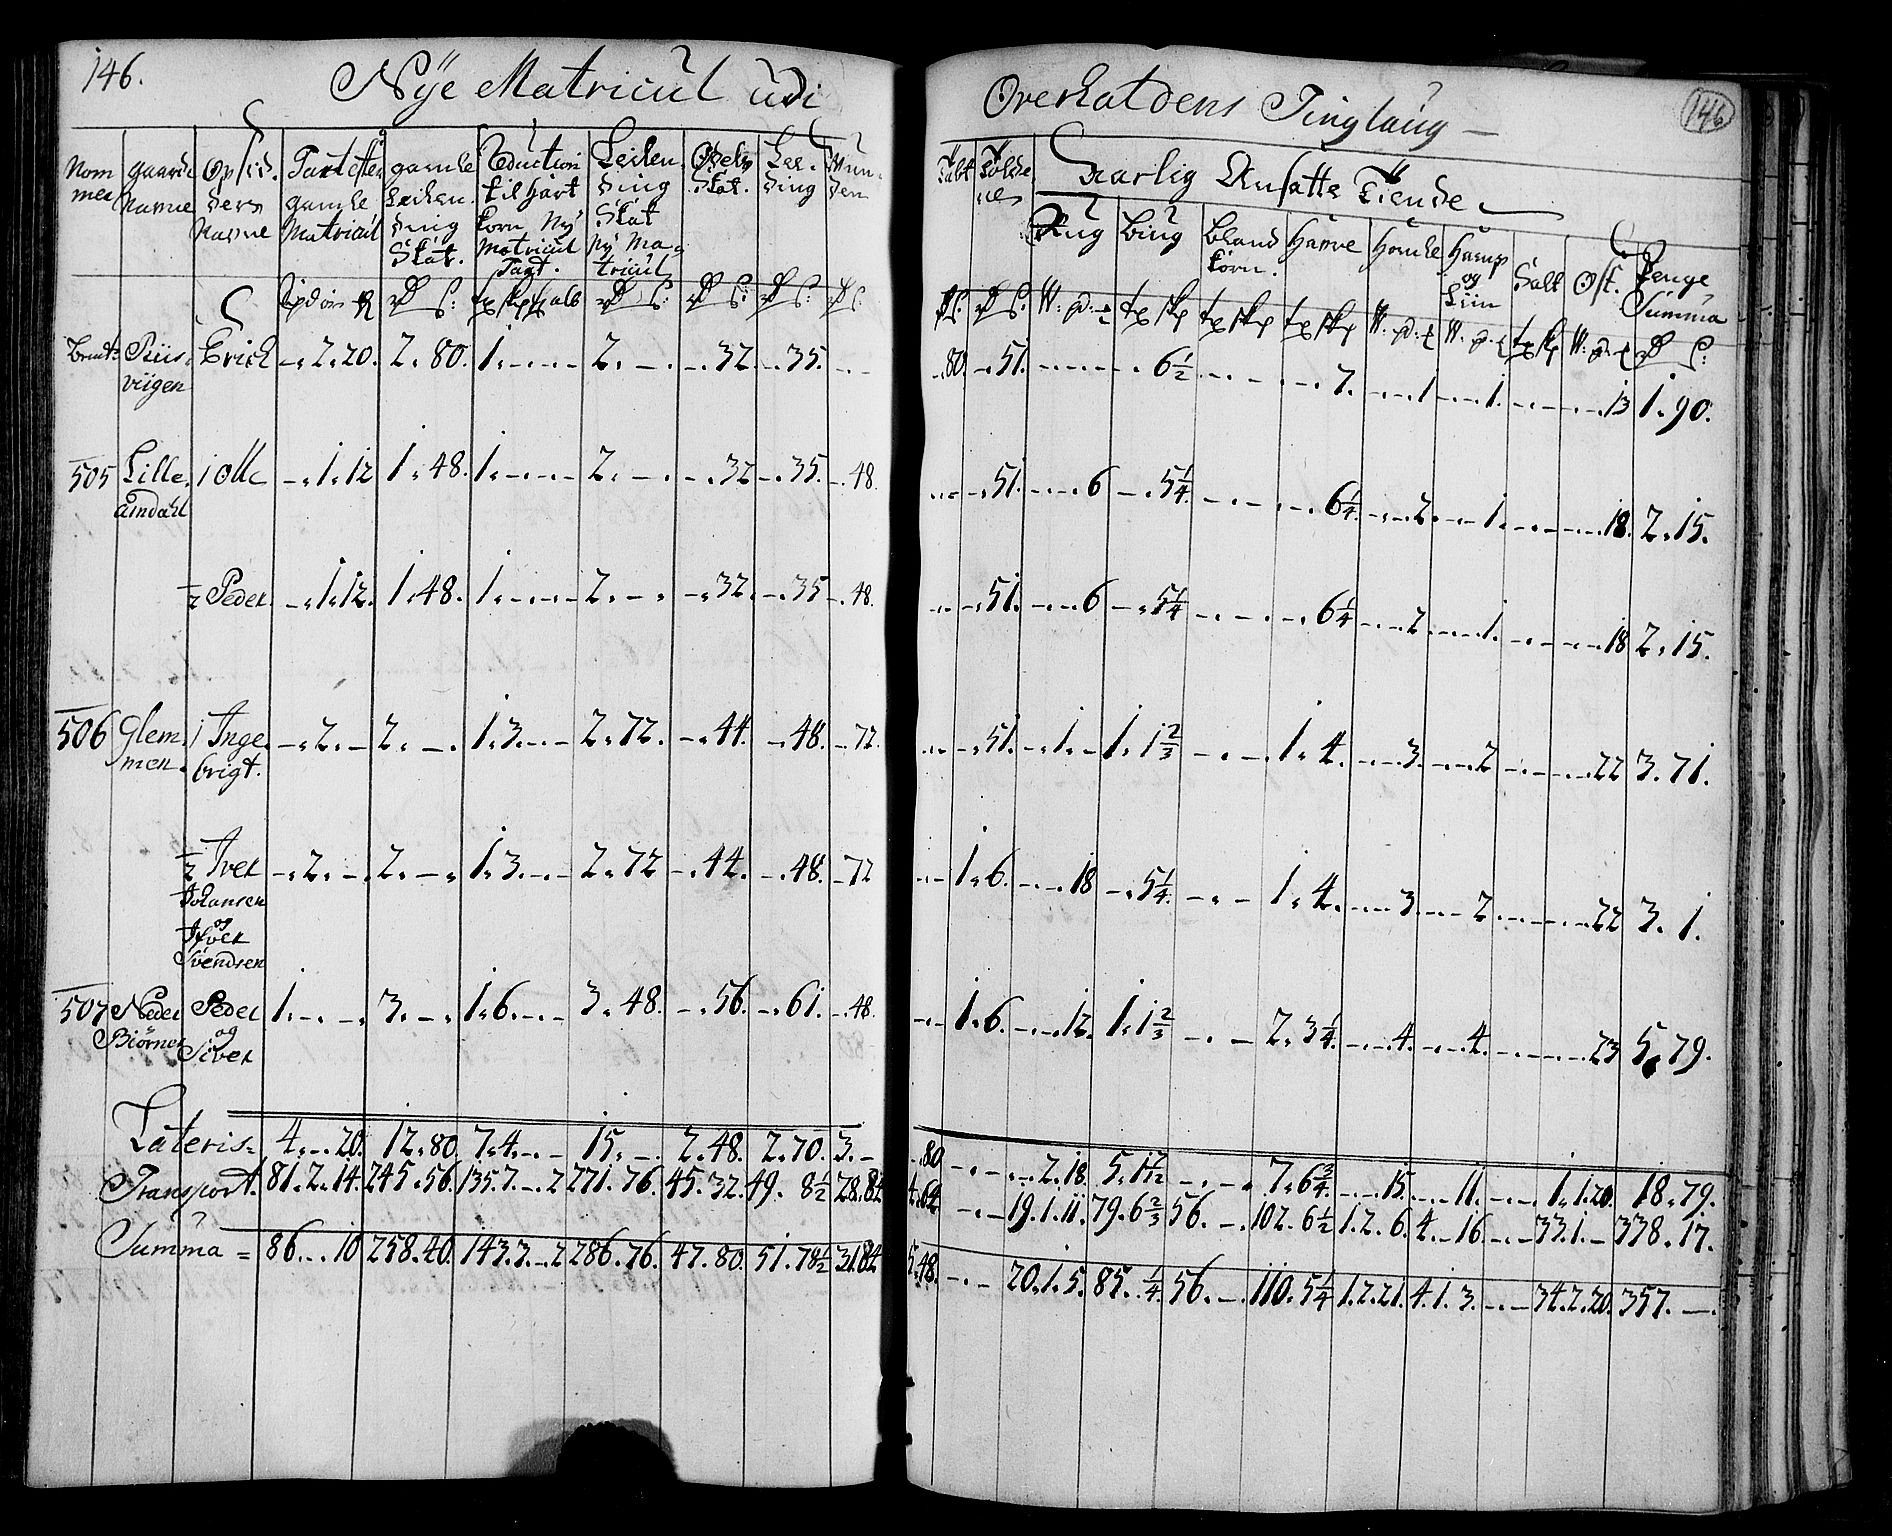 146.
Nÿe Matricul udi
Overhaldens Tinglaug
146
Nom mer
gaards Nafne
Opsid ders Nafne
Taxt efter gamle Matricul
gamle Leilen ding Skat.
Reduction til hart korn Ny Matricul Taxt.
Leilen ding Skat Ny Ma= tricul
Odels Skat.
Lee ding
Tolder nes
Aarlig Ansatte Tiende
Rug
Biug
Bland korn.
Havre
Homle
Hamp og Liin
Salt
Ost.
Penge Summa
Puus= viigen Erich -. 2. 20. 2. 80. 1. - . - 2. - . -. 32. -. 35. - . -
-. 80. -. 51. - . - . - 6½ - . - . - 7. - . - 1 - . - 1. - . - . - 13 1. 90.
505 Lille= Amdahl 1 Olle -. 1. 12 1. 48. 1. - . - 2. - . -. 32 -. 35. -. 48.
- . - -. 51. - . - 6 -. 5¼ - . - . - 6¼ - . - 2. - . - 1. - . - . - 18. 2. 15.
½ Peder -. 1. 12. 1. 48. 1. - . - 2. - . -. 32. -. 35 -. 48.
- . - -. 51. - . - 6 -. 5¼ - . - . - 6¼ - . - 2 - . - 1. - . - . - 18 2. 15.
506 Glem= men. 1 Inge= brigt. -. 2. - 2. - . 1. 3. - 2. 72. -. 44. -. 48. -. 72.
- . - -. 51. -. 1. - 1. 1⅔ - . - 1. 4. - . - 3. - . - 2 - . - . - 22 3. 71.
½ Iver Johansen og Ifver Svendsen -. 2. - 2. - . 1. 3. - 2. 72 -. 44. -. 48. -. 72
- . - 1. 6. - . - 18 -. 5¼ - . - 1. 4. - . - 3 - . - 2 - . - . - 22 3. 1.
507 Neder Biørnes Peder og Siver 1. - . - 3. - . 1. 6. - 3. 48. -. 56. -. 61. -. 48.
- . - 1. 6. - . - 12. 1. 1⅔ - . - 2. 3¼ - . - 4. - . - 4. - . - . - 23 5. 79.
Lateris= 4. -. 20. 12. 80. 7. 4. - . - 15. - . 2. 48. 2. 70. 3. -
-. 80 - . - . -. 2. 18. 5. 1 7/12 - . - . 7. 6¾ - . - 15. - . - 11. - . - 1. 1. 20. 18. 79.
Transport. 81. 2. 14. 245. 56. 135. 7. -. 2 271. 76. 45. 32. 49. 8½ 28. 84
4. 64 - . - 19. 1. 11. 79. 6⅔ 56. - . 102. 6½ 1. 2. 6. 4. - 16 - . - 33. 1. - 338. 17.
Summa = 86. -. 10 258. 40. 143. 3. -. 2 286. 76. 47. 80. 51. 78½ 31. 84
5. 48. - . - 20. 1. 5. 85. ¼ 56. - . 110. 5¼ 1. 2. 21. 4. 1. 3. - . - 34. 2. 20. 357. -.